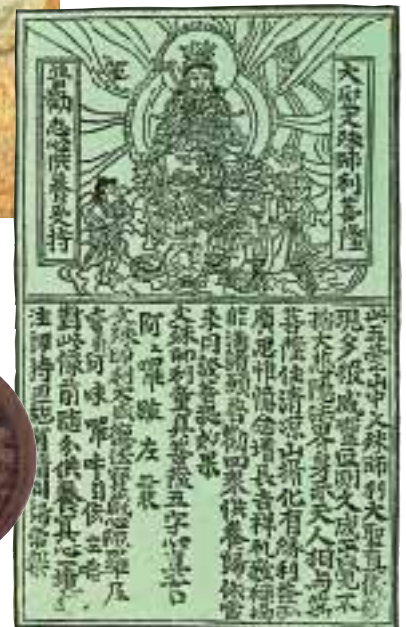 大聖文殊師利菩薩
普勸志心供養受持
此五臺山中文殊師利大聖真儀變
現多般威靈叵測久成正覺不
捨大悲隱法界身示天人相與萬
菩薩住清涼山攝化有緣利益弘
廣思惟憶念增長吉祥禮敬稱揚
能滿諸願普勸四眾供養歸依當
來同證菩提妙果
文殊師利童真菩薩五字心真言
阿上囉跛左曩
文殊師利大威德法寶藏心陁羅尼
阿味囉吽引佉左
對此像前隨分供養其心專
注課持迴施有情同歸常樂